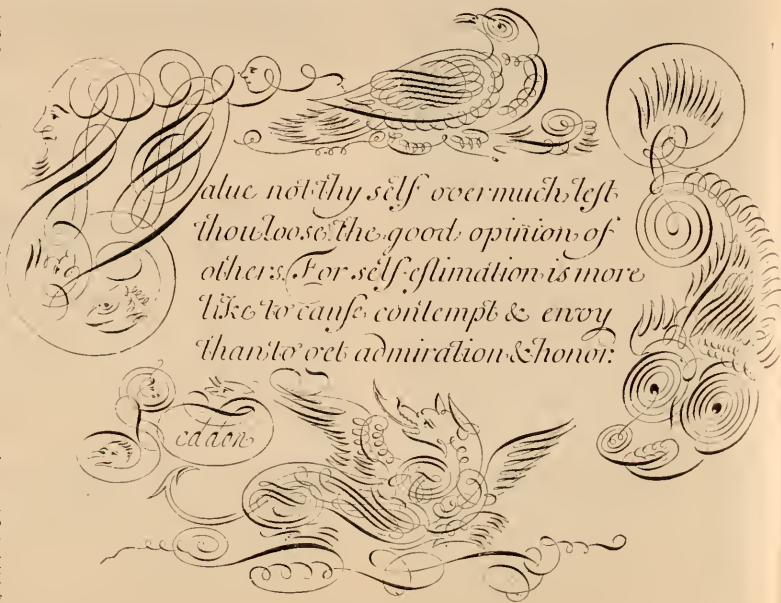 Value not thy self overmuch, lest
thou loose the good opinion of
others. For self-estimation is more
like to cause contempt & envy
than to get admiration & honor:
Seddon